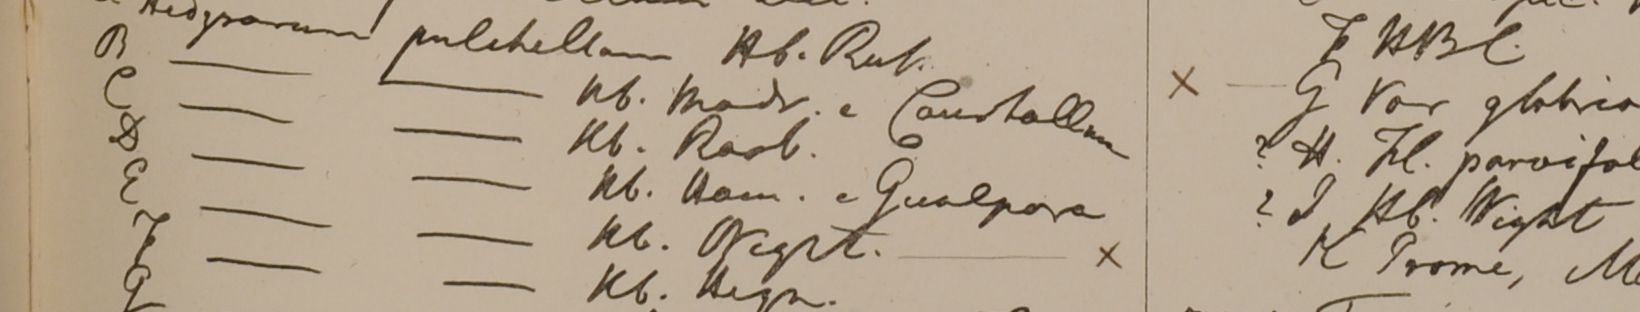 Hedysarum
B pulchellum Hb. Rub.
C Hb. Madr. e Courtallum
D Hb. Roxb.
E Hb. Ham. e Gualpara
F Hb. Wight. x
G Hb. Heyn.
F HBC.
x G Var glabrio
? H. Fl. parvifol
? I, Hb. Wight
K Prome, M